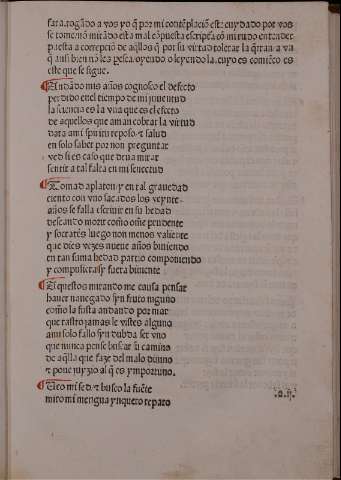 fara. rogãdo a vos yo q̃ por mi contẽplacion est: cuydado por vos
se tome no mirãdo esta mal cõpuesta escriptura cõ mi rudo entender
puesta a correpciõ de aq̃llos q̃ por su virtud tolerar la q̃rran a vn
q̃ ansi bien nõ les peresca oyendo o leyendo la. cuyo es comiẽço es
este que se sigue.
Andãdo mis años cognosco el defecto
perdido en el tiempo de mi jouentud
la sciencia es la vna que es el efecto
de aquellos que aman cobrar la virtud
dara a mi spũ reposo &amp; salud
en solo saber por non preguntar
ved si es caso que deua mirar
sentir a tal falta en mi senectud
Tomad a platon y en tal grauedad
ciento con vno sacados los veynte
años se falla escriuir en su hedad
descando morir como õme prudente
y socrates luego non menos valiente
que dies vezes nueue años biuiendo
en tan suma hedad partio componiendo
y compusieras sy fuera biuiente
Aquestos mirando me causa pensar
hauer nauegado syn fruto ninguno
como la fusta andando por mar
que rastro jamas le vistes alguno
ami solo fallo syn dubda ser vno
que nunca pense buscar su camino
de aq̃lla que faze del malo diuino
&amp; pone juyzio al q̃ es ynportuno.
Veo mi sed. &amp; busco la fuẽte
miro mi mengua y nquero reparo
.a.ij.